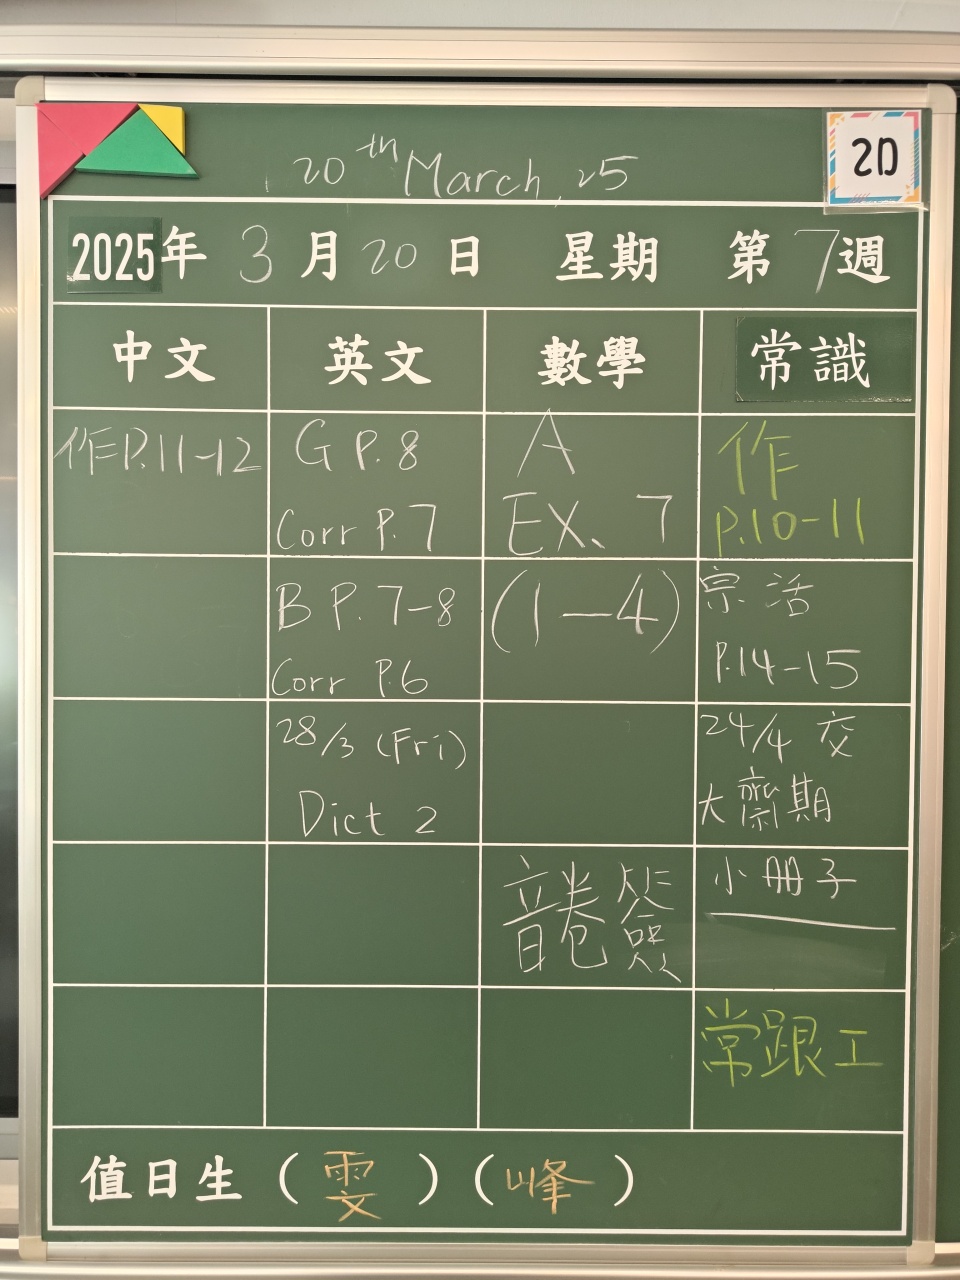 20th March, 25
2D
2025年 3月20日 星期 第7週
中文 英文 數學 常識
作P.11-12
G P.8
Corr P.7
B P.7-8
Corr P.6
28/3 (Fri)
Dict 2
A
EX. 7
(1-4)
音卷簽
作
P.10-11
宗活
P.14-15
24/4 交
大齋期
小冊子
常跟工
值日生(雯)(峰)